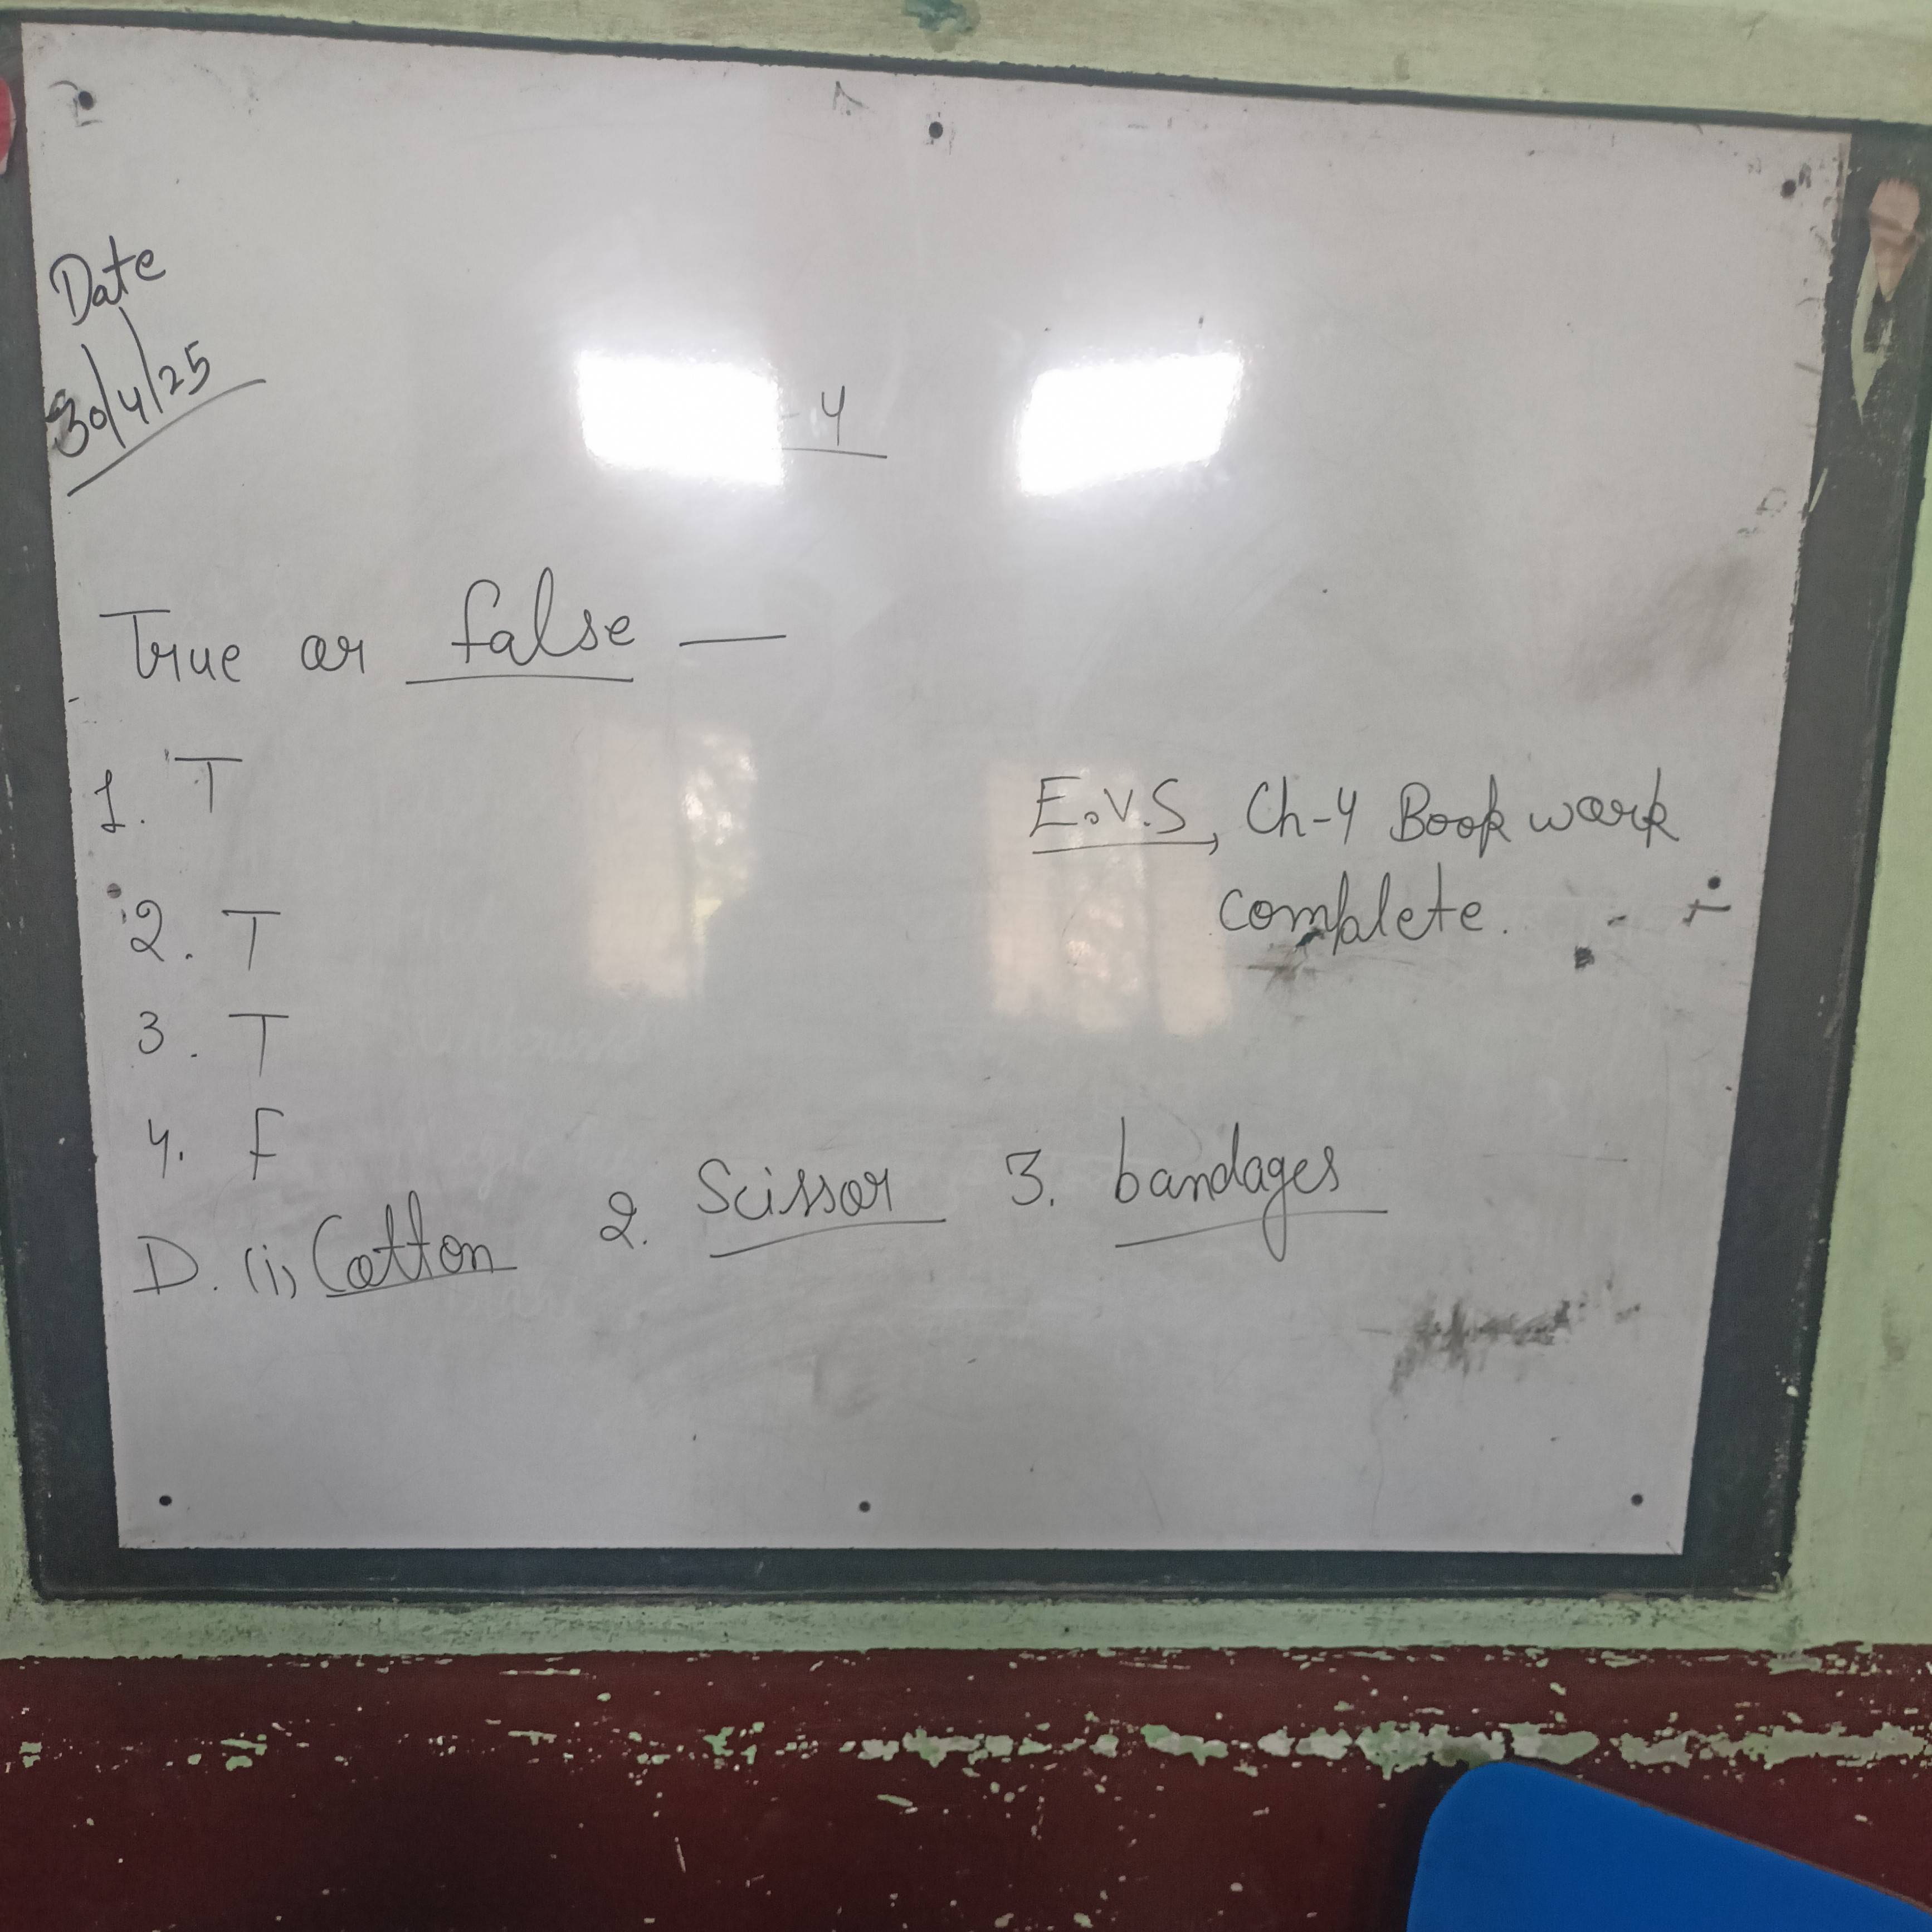 Date
30/4/25
- 4
True or false —
1. T
2. T
3. T
4. F
E.V.S, Ch-4 Book work
complete.
D. (i) Cotton 2. Scissor 3. bandages